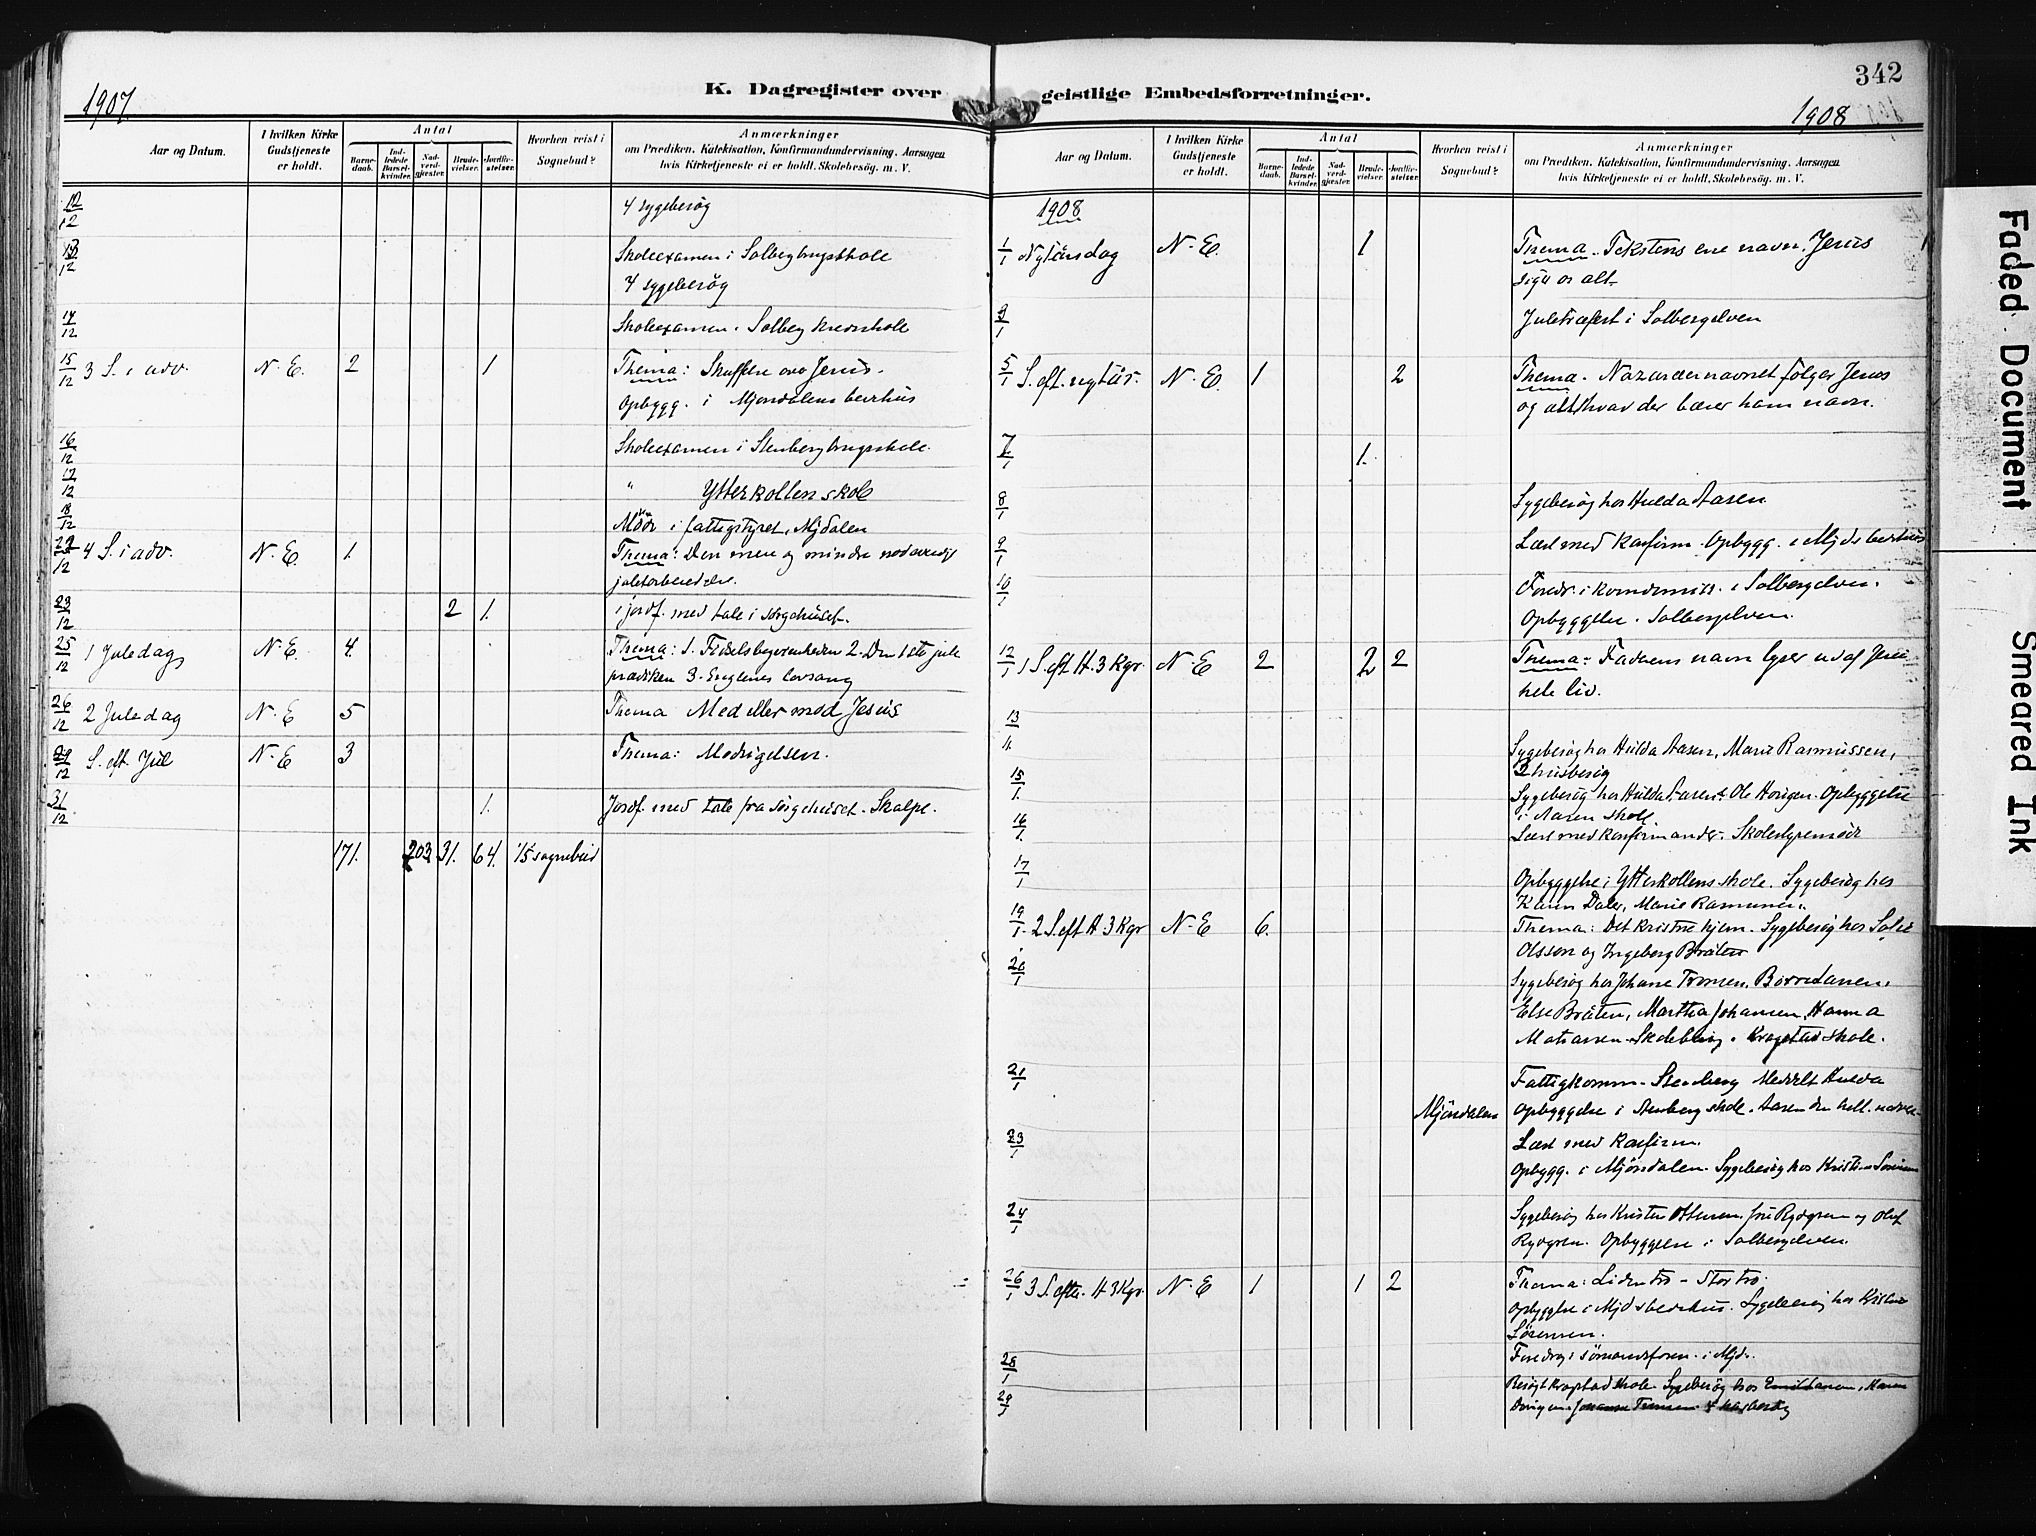 1907.
K. Dagregister over
Aar og Datum.
I hvilken Kirke Gudstjeneste er holdt.
Antal
Barnedaab.
Indledede Barselkvinder.
Nadverdgjæster.
Brudevielser.
Jordfæstelser.
Hvorhen reist i Sognebud?
Anmærkninger
om Prædiken. Katekisation, Konfirmandundervisning. Aarsagen
hvis Kirketjeneste ei er holdt. Skolebesög. m. V.
12/12 4 sygebesøg
13/12 Skoleexamen i Solbergbrugsskole
4 sygebesøg
14/12 Skoleexamen. Solberg kredsskole
15/12 3 S. i adv. N. E. 2 1 Thema: Skuffelse over Jesus.
Opbygg. i Mjøndalens bedehus
16/12 Skoleexamen i Stenbergbrugsskole.
17/12 " Ytterkollen skole
18/12 Møde i fattigstyret, Mjdalen
22/12 4 S. i adv. N. E. 1. Thema: Den mere og mindre nødvendige
juleforberedelse.
23/12 2 1. 1 jordf. med tale i sørgehuset.
25/12 1 Juledag N. E. 4. Thema: 1. Fødselsbegivenheden 2. Den 1ste jule
prædiken 3. Englenes lovsang
26/12 2 Juledag N. E 5 Thema Med eller mod Jesus
29/12 S. eft. Jul N. E 3 Thema: Modsigelsen.
31/12 1. Jordf. med tale fra sørgehuset. Skalpe.
171. 203 31. 64. 15 sognebud
342
geistlige Embedsforretninger.
1908
Aar og Datum.
I hvilken Kirke Gudstjeneste er holdt.
Antal
Barnedaab.
Indledede Barselkvinder.
Nadverdgjæster.
Brudevielser.
Jordfæstelser.
Hvorhen reist i Sognebud?
Anmærkninger
om Prædiken. Katekisation, Konfirmandundervisning. Aarsagen
hvis Kirketjeneste ei er holdt, Skolebesög. m. V.
1908
1/1 Nytårsdag N. E. 1 Thema. Tekstens ene navn, Jesus
siger os alt.
3/1 Juletræfest i Solbergelven
5/1 S. eft. nytår. N. E. 1 2 Thema. Nazaræernavnet følger Jesus
og alt hvad der bærer hans navn.
7/1 1.
8/1 Sygebesøg hos Hulda Aasen
9/1 Læst med konfirm. Opbygg. i Mjds bedehus
10/1 Foredr. i Solbergelven.
Opbyggelse. Solbergelven.
12/1 1 S. eft H. 3 Kgr. N. E 2 2 2 Thema: Faderens navn lyser ud af Jesu
hele liv.
13
14 Sygebesøg hos Hulda Aasen, Marie Rasmussen,
2 husbesøg
15/1. Sygebesøg hos Hulda Aasen Ole Horgen. Opbyggelse
i Aasen skole.
16/1. Læst med konfirmander. Skolestyremøde
17/1 Opbyggelse i Ytterkollens skole. Sygebesøg hos
Karen Daler, Marie Rasmussen.
19/1. 2 S. eft H. 3 Kgr N. E 6. Thema: Det kristne hjem. Sygebesøg hos Sofie
Olsson og Ingeborg Bråten
20/1 Sygebesøg hos Johane Tromsen,
Else Bråten, Martha Johansen, Hanna
Matiassen. Skolebesøg. Krogstad skole.
21/1 Fattigkomm. Stenberg Meddelt Hulda
Mjøndalen Opbyggelse i Stenberg skole. Aasen den hell. nadver
23/1 Læst med konfirm.
Opbygg. i Mjøndalen. Sygebesøg hos
24/1 Sygebesøg hos Kristen Ottesen. Rydgren og Oluf
Rydgren. Opbyggelse i Solbergelven.
26/1 3 S. efter. H. 3 Kgr. N. E 1 1 2 Thema: Liden tro – Stor tro.
Opbyggelse i Mjds bedehus. Sygebesøg hos
Sørensen.
28/1 Foredrag i sømandsforen. i Mjd.
29/1 Besøgt Krogstad skole. Sygebesøg hos
husbesøg
Faded Document
Smeared Ink